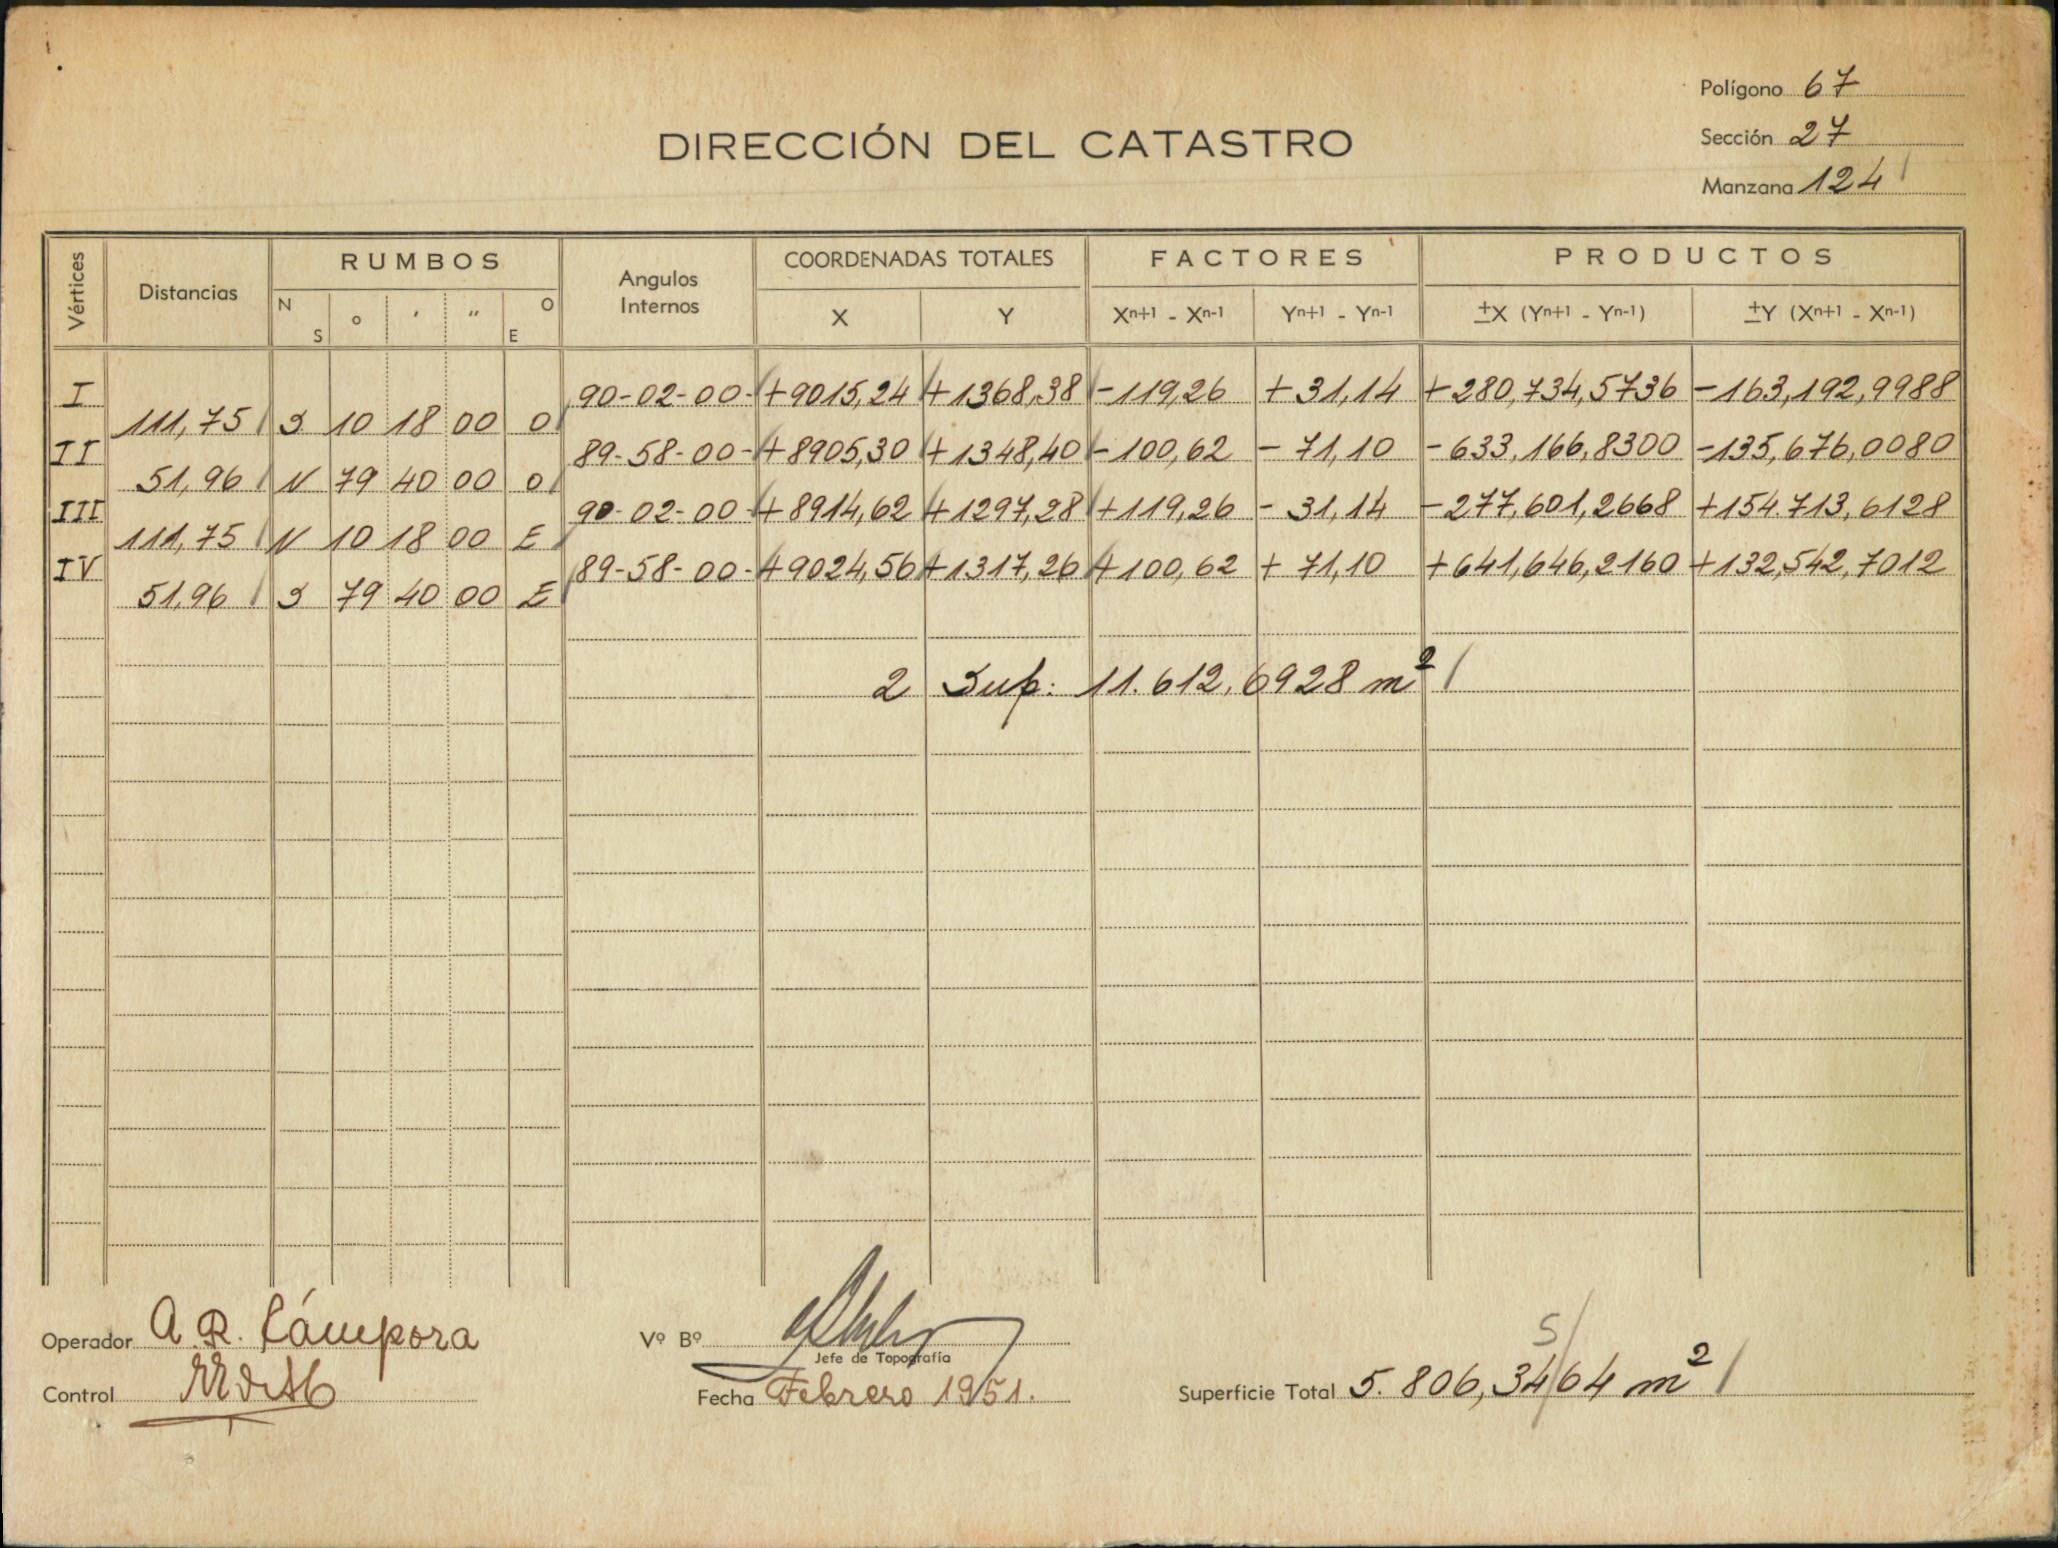 Polígono 67
Sección 27
Manzana 124
DIRECCIÓN DEL CATASTRO
Vértices Distancias RUMBOS Angulos Internos COORDENADAS TOTALES FACTORES PRODUCTOS
N S o ′ ″ O E X Y Xn+1 - Xn-1 Yn+1 - Yn-1 ±X (Yn+1 - Yn-1) ±Y (Xn+1 - Xn-1)
I 90-02-00- +9015,24 +1368,38 -119,26 +31,14 +280,734,5736 -163,192,9988
111,75 S 10 18 00 O
II 89-58-00- +8905,30 +1348,40 -100,62 - 71,10 -633,166,8300 -135,676,0080
51,96 N 79 40 00 O
III 90-02-00- +8914,62 +1297,28 +119,26 - 31,14 -277,601,2668 +154.713,6128
111,75 N 10 18 00 E
IV 89-58-00- +9024,56 +1317,26 +100,62 + 71,10 +641,646,2160 +132,542,7012
51,96 S 79 40 00 E
2 Sup: 11.612,6928 m²
Operador A.R. Cámpora
Vº Bº
Jefe de Topografía
Control
Fecha Febrero 1951.
5
Superficie Total 5.806,3464 m²